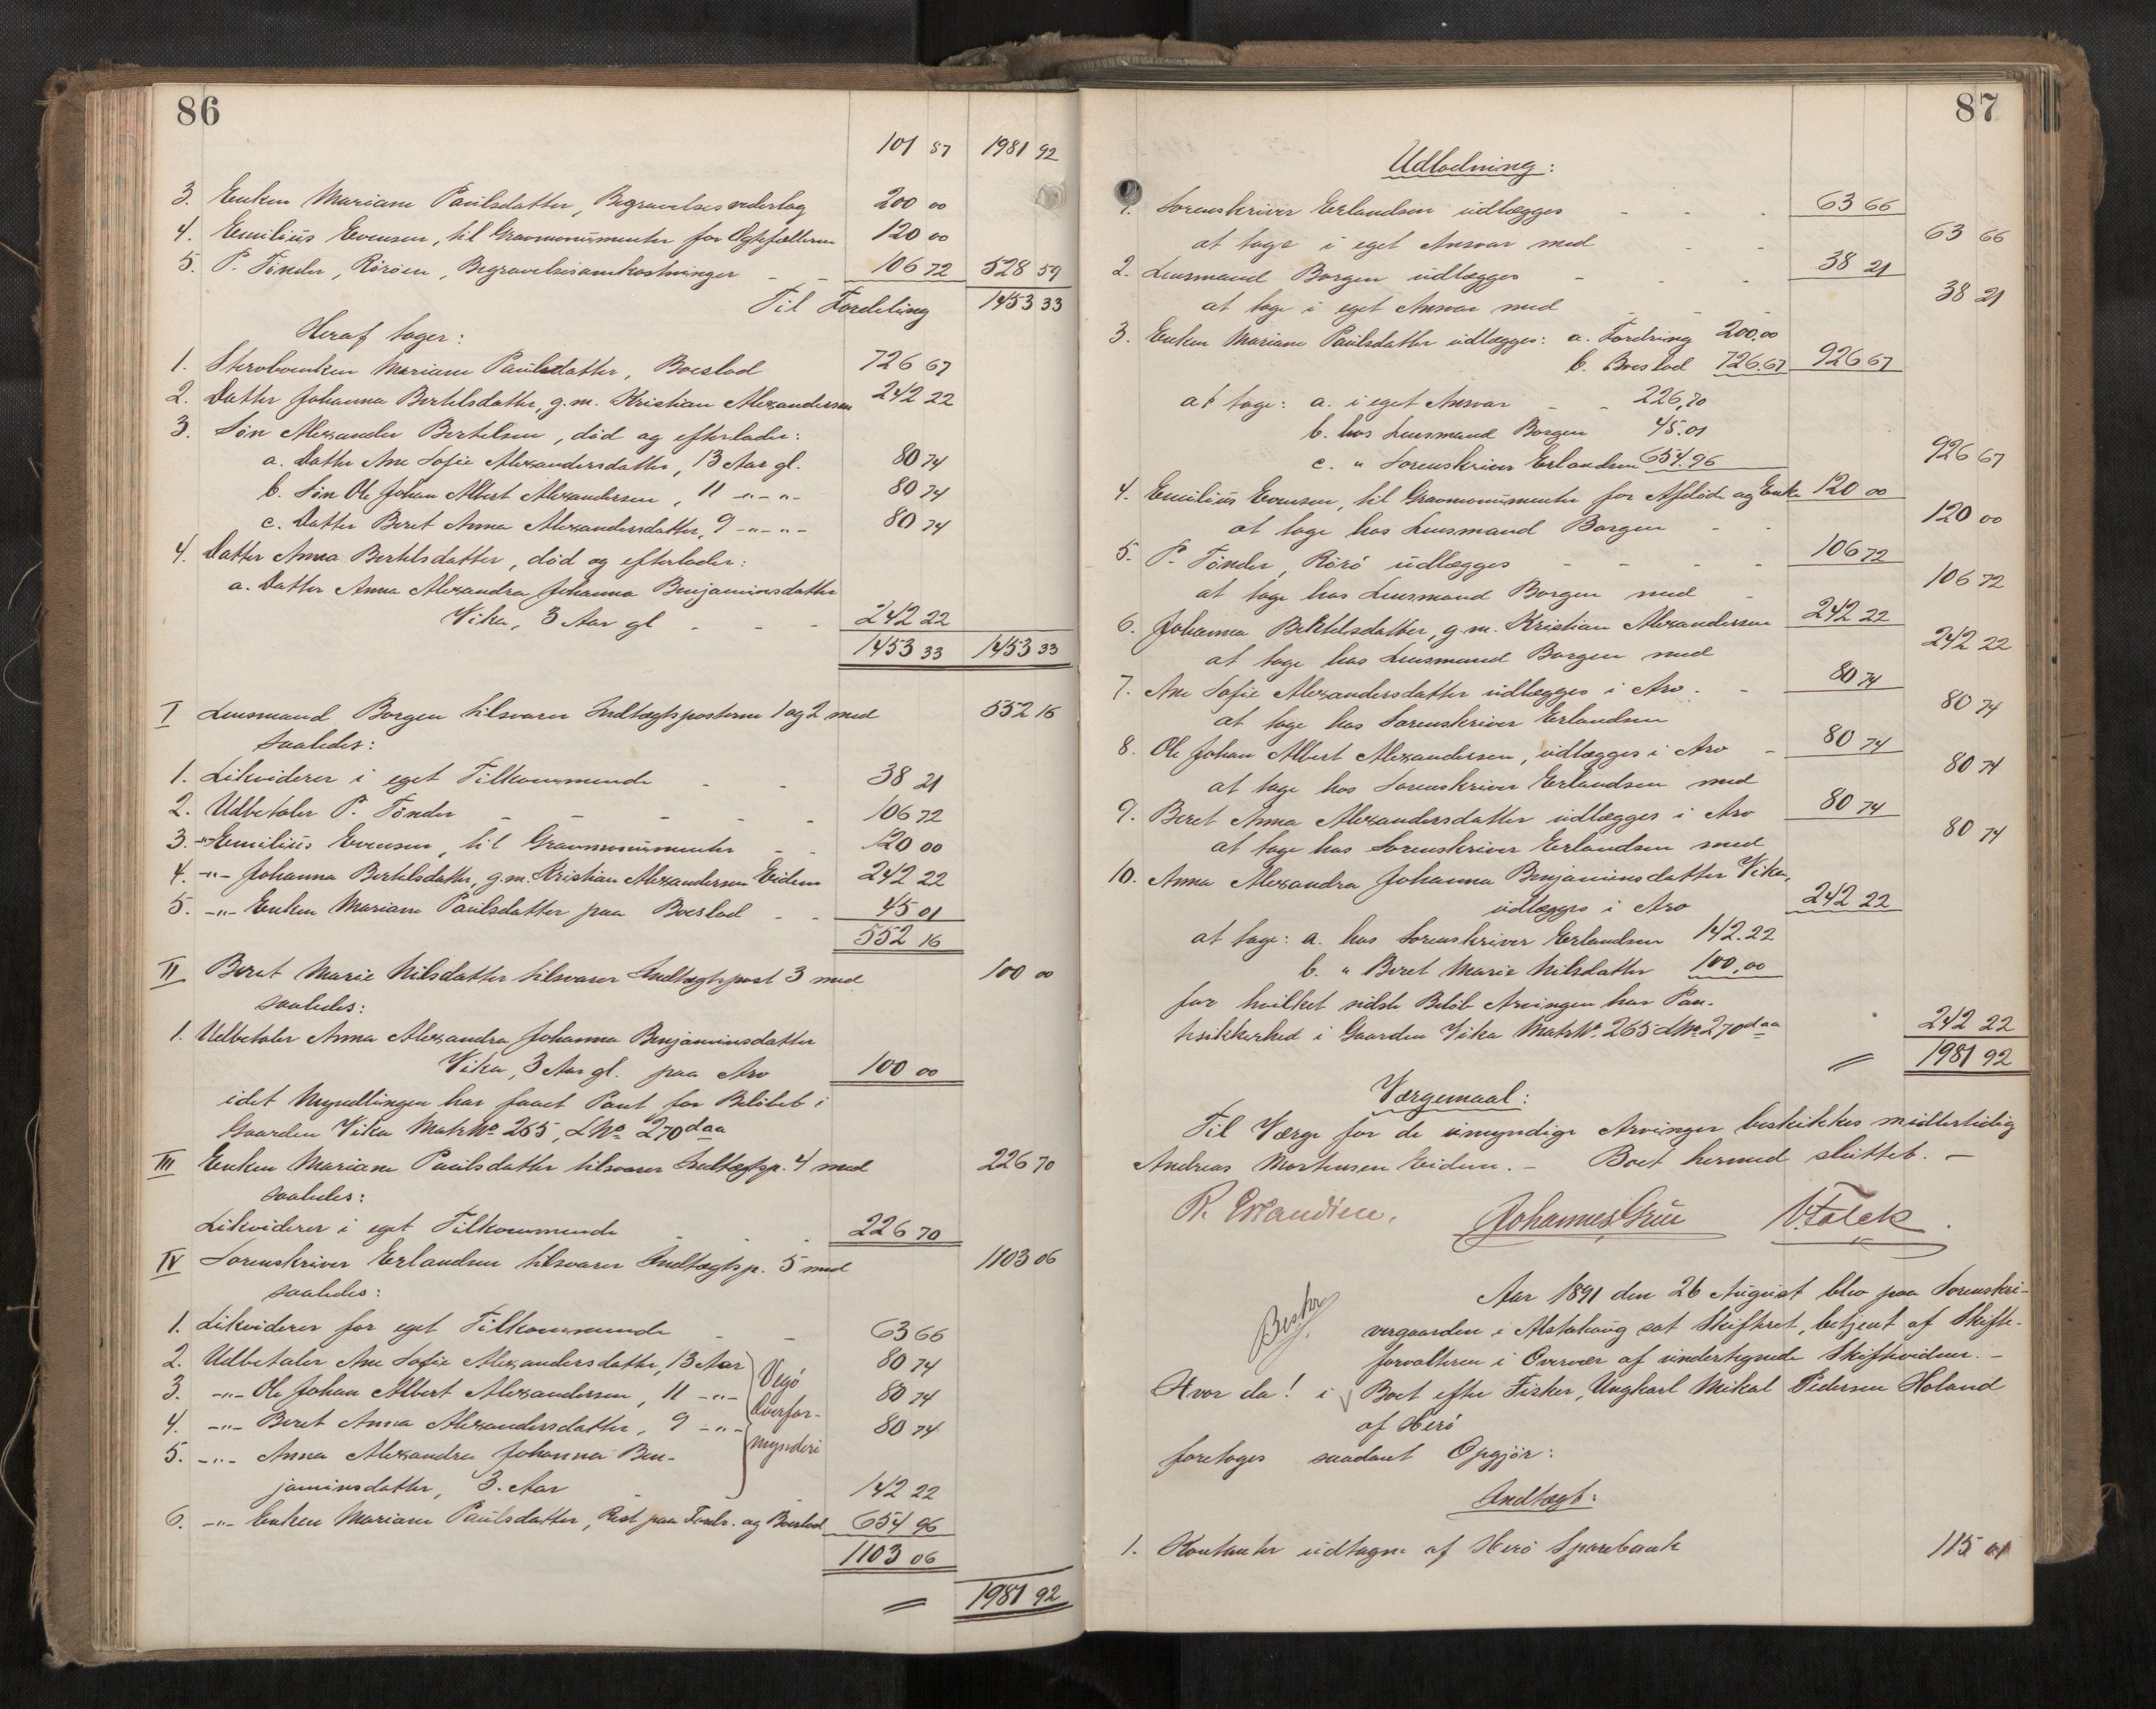 86
101 87 1981 92
3. Enken Mariane Paulsdatter, Begravelsesvederlag 200 00
4. Emilius Evensen, til Gravmonumenter for Ægtefællerne 120 00
5. P. Tönder, Röröen, Begravelsesomkostninger - - 106 72 528 59
Til Fordeling 1453 33
Heraf tager:
1. Skrobvenken Mariane Paulsdatter, Boeslod 726 67
2. Datter Johanna Bertelsdatter, g.m. Kristian Alexandersen 242 22
3. Sön Alexander Bertelsen, död og efterlader:
a. Datter Ane Sofie Alexandersdatter, 13 Aar gl. 80 74
b. Sön Ole Johan Albert Alexandersen, 11 -"-"- 80 74
c. Datter Beret Anna Alexandersdatter, 9 -"-"- 80 74
4. Datter Anna Bertelsdatter, död og efterlader:
a. Datter Anna Alexandra Johanna Benjaminsdatter
Vika, 3 Aar gl - - - 242 22
1453 33 1453 33
I Lensmand Borgen tilsvarer Indtægtsposterne 1 og 2 med 552 16
saaledes:
1. Likviderer i eget Tilkommende - - 38 21
2. Udbetaler P. Tönder - - - - 106 72
3. -"- Emilius Evensen, til Gravmonumenter - - 120 00
4. -"- Johanna Bertelsdatter, g.m. Kristian Alexandersen Eidem 242 22
5. -"- Enken Mariane Paulsdatter paa Boeslod - - 45 01
552 16
II Beret Marie Nilsdatter tilsvarer Indtægtspost 3 med 100 00
saaledes:
1. Udbetaler Anna Alexandra Johanna Benjaminsdatter
Vika, 3 Aar gl. paa Arv 100 00
idet Myndlingen har faaet Pant for Belöbet i
Gaarden Vika Matr No 265, LNo 270 daa
III Enken Mariane Paulsdatter tilsvarer Indtægtsp. 4 med 226 70
saaledes:
Likviderer i eget Tilkommende - - - 226 70
IV Sorenskriver Erlandsen tilsvarer Indtægtsp. 5 med 1103 06
saaledes:
1. Likviderer for eget Tilkommende - - 63 66
2. Udbetaler Ane Sofie Alexandersdatter, 13 Aar 80 74
3. -"- Ole Johan Albert Alexandersen, 11 -"- 80 74
4. -"- Beret Anna Alexandersdatter, 9 -"- 80 74
Vegö Overformynderi
5. -"- Anna Alexandra Johanna Ben-
jaminsdatter, 3. Aar 142 22
6. -"- Enken Mariane Paulsdatter, Rest paa Fordr. og Boeslod 654 96
1103 06
1981 92
87
Udlodning:
1. Sorenskriver Erlandsen udlægges - - - 63 66
at tage i eget Ansvar med - - 63 66
2. Lensmand Borgen udlægges - - - 38 21
at tage i eget Ansvar med - - 38 21
3. Enken Mariane Paulsdatter udlægges: a. Fordring 200,00
b. Boeslod 726.67 926 67
at tage: a. i eget Ansvar - - 226,70
b. hos Lensmand Borgen 45.01
c. " Sorenskriver Erlandsen 654.96 926 67
4. Emilius Evensen, til Gravmonumenter for Afdöde og Enke 120 00
at tage hos Lensmand Borgen - - 120 00
5. P. Tönder, Rörö udlægges - - - - 106 72
at tage hos Lensmand Borgen med - 106 72
6. Johanna Bertelsdatter, g.m. Kristian Alexandersen 242 22
at tage hos Lensmand Borgen med 242 22
7. Ane Sofie Alexandersdatter udlægges i Arv. - 80 74
at tage hos Sorenskriver Erlandsen 80 74
8. Ole Johan Albert Alexandersen, udlægges i Arv - 80 74
at tage hos Sorenskriver Erlandsen med 80 74
9. Beret Anna Alexandersdatter udlægges i Arv 80 74
at tage hos Sorenskriver Erlandsen med 80 74
10. Anna Alexandra Johanna Benjaminsdatter Vika,
udlægges i Arv 242 22
at tage: a. hos Sorenskriver Erlandsen 142.22
b. " Beret Marie Nilsdatter 100,00
for hvilket sidste Belöb Arvingen har Pan-
tesikkerhed i Gaarden Vika Matr No. 265 LNo 270 daa 242 22
1981 92
Værgemaal:
Til Værge for de umyndige Arvinger beskikkes midlertidig
Andreas Mortensen Eidem. - Boet hermed sluttet. -
R. Erlandsen. Johannes Grue V. Falck.
Aar 1891 den 26 August blev paa Sorenskri-
vergaarden i Alstahaug sat Skifteret, betjent af Skifte-
forvalteren i Overvær af undertegnede Skiftevidner. -
Hvor da! i Boet efter Fisker, Ungkarl Mikal Pedersen Holand
af Herö
foretoges saadant Opgjör:
Indtægt:
1. Kontanter udtagne af Herö Sparebank 115 01